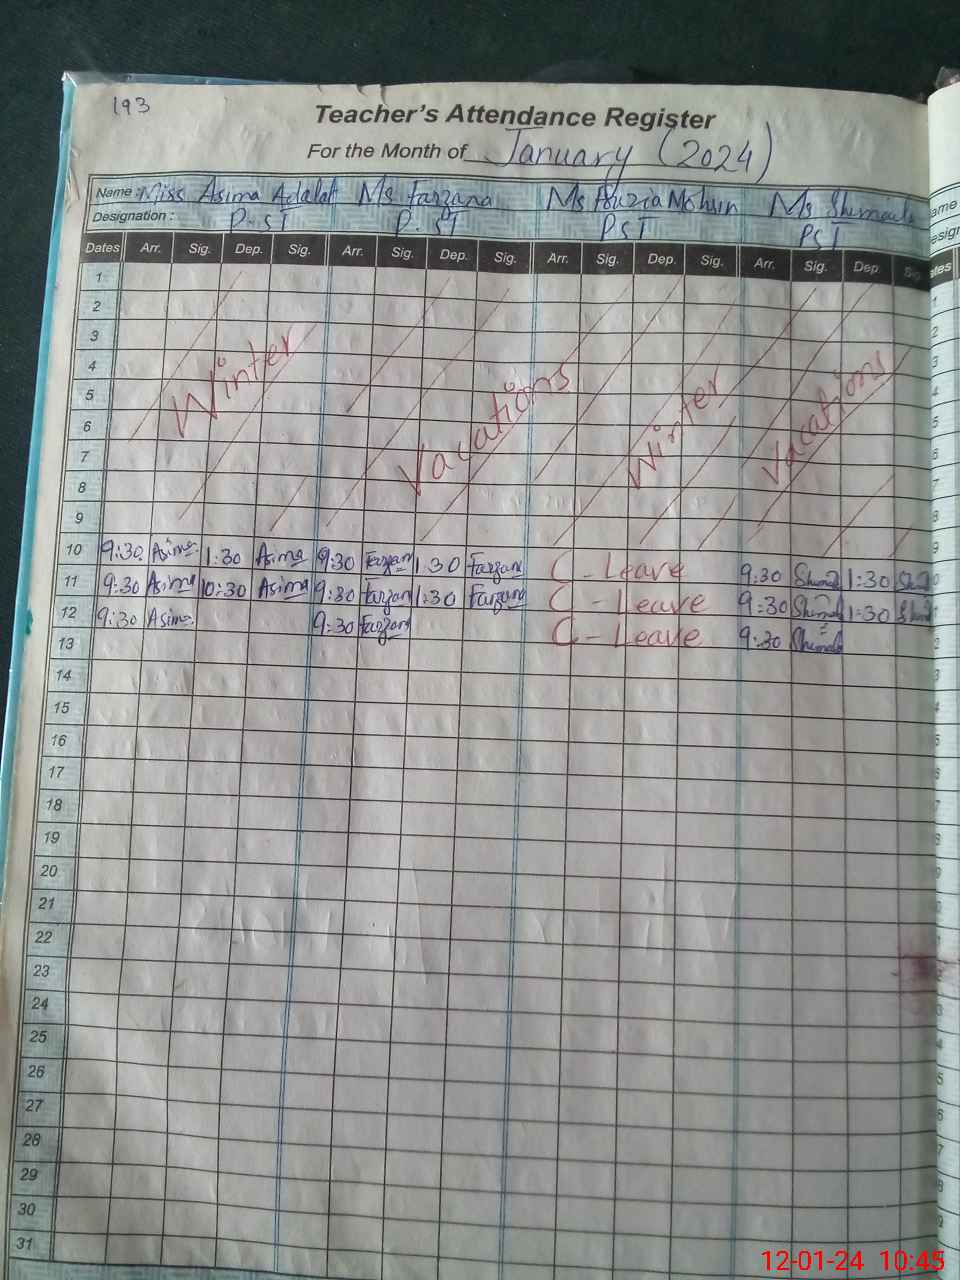 193
Teacher's Attendance Register
For the Month of January (2024)
Name : Miss Asima Adalat Ms Farzana Ms Fouzia Mohsin Ms
Designation : P.ST P.ST PST PST
Dates Arr. Sig. Dep. Sig. Arr. Sig. Dep. Sig. Arr. Sig. Dep. Sig. Arr. Sig. Dep. Sig.
1
2
3
4
5
6
7
8
9
Winter Vacations Winter Vacations
10 9:30 Asima 1:30 Asima 9:30 Farzana 1:30 Farzana C-Leave 9:30 1:30
11 9:30 Asima 10:30 Asima 9:30 Farzana 1:30 Farzana C-Leave 9:30 1:30
12 9:30 Asima 9:30 Farzana C-Leave 9:30
13
14
15
16
17
18
19
20
21
22
23
24
25
26
27
28
29
30
31
12-01-24 10:45